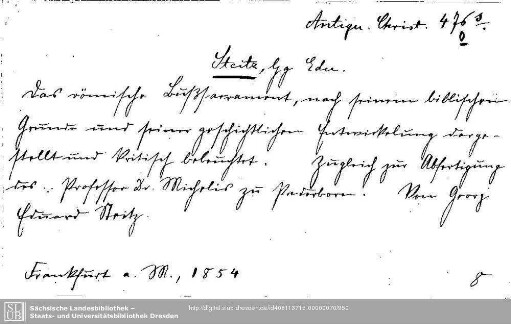 Antiqu. Christ. 476 s.
8
Steitz, Gg Edu.
Das römische Bußsacrament, nach seinem biblischen
Grunde und seiner geschichtlichen Entwickelung darge-
stellt und kritisch beleuchtet. Zugleich zur Abfertigung
des Professor Dr. Michelis zu Paderborn. Von Georg
Eduard Steitz.
Frankfurt a. M., 1854 8
SLUB
Sächsische Landesbibliothek –
Staats- und Universitätsbibliothek Dresden